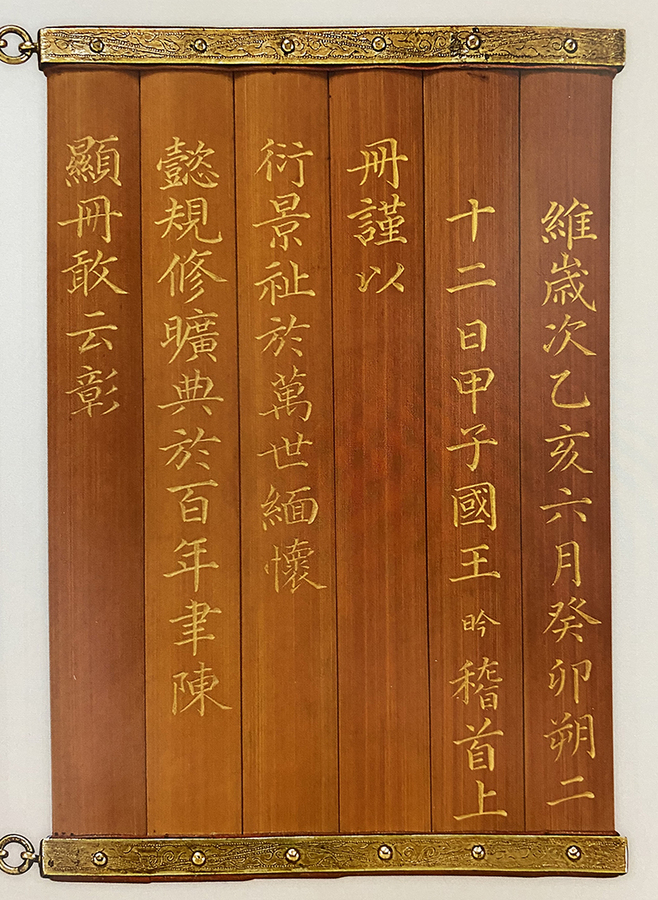 維歲次乙亥六月癸卯朔二
十二日甲子國王昑稽首上
冊謹以
衍景祉於萬世緬懷
懿規修曠典於百年聿陳
顯冊敢云彰